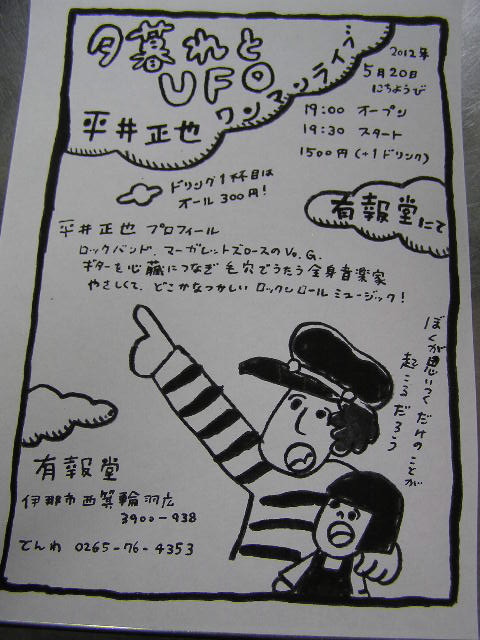 夕暮れと
UFO
平井正也 ワンマンライブ
2012年
5月20日
にちようび
19:00 オープン
19:30 スタート
1500円(+1ドリンク)
ドリンク1杯目は
オール300円!
有報堂にて
平井正也 プロフィール
ロックバンド、マーガレットズロースのVo.G.
ギターを心臓につなぎ毛穴でうたう全身音楽家
やさしくて、どこかなつかしいロックンロールミュージック!
ぼくが思いつくだけのことが
起こるだろう
有報堂
伊那市西箕輪羽広
3900-938
でんわ 0265-76-4353